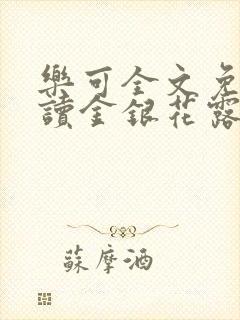 樂可全文免
讀金銀花露
蘇摩酒